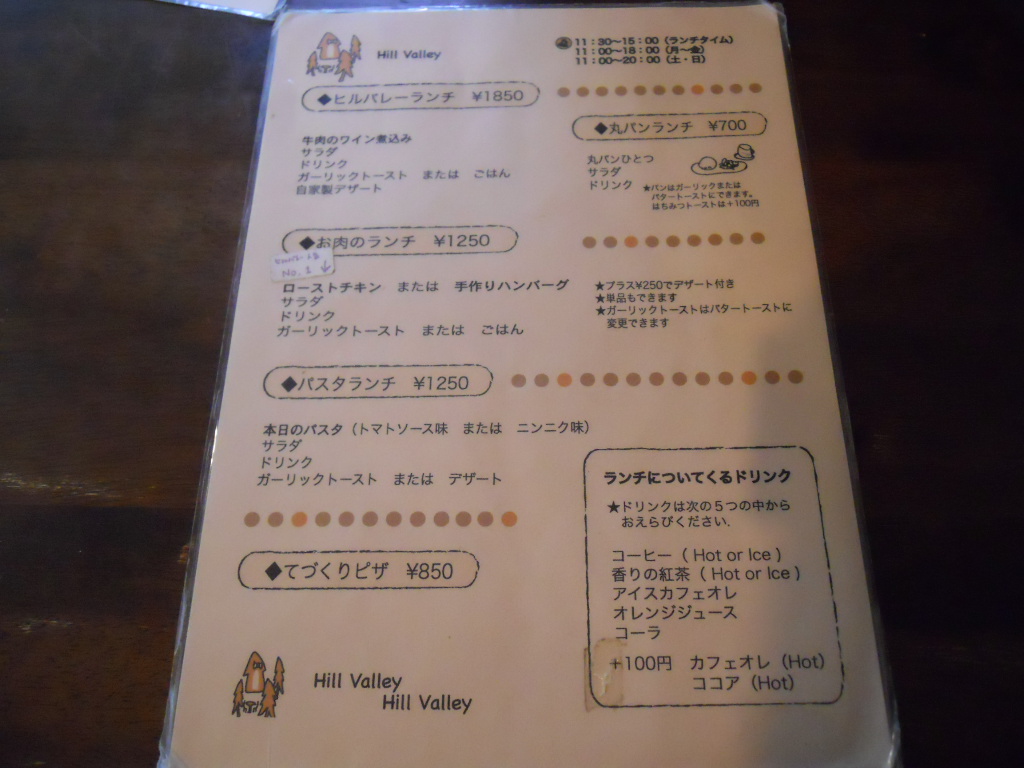 Hill Valley
11：30〜15：00（ランチタイム）
11：00〜18：00（月〜金）
11：00〜20：00（土・日）
◆ヒルバレーランチ ¥1850
牛肉のワイン煮込み
サラダ
ドリンク
ガーリックトースト または ごはん
自家製デザート
◆丸パンランチ ¥700
丸パンひとつ
サラダ
ドリンク
★パンはガーリックまたは
バタートーストにできます。
はちみつトーストは＋100円
◆お肉のランチ ¥1250
No.1 ↓
ローストチキン または 手作りハンバーグ
サラダ
ドリンク
ガーリックトースト または ごはん
★プラス¥250でデザート付き
★単品もできます
★ガーリックトーストはバタートーストに
変更できます
◆パスタランチ ¥1250
本日のパスタ（トマトソース味 または ニンニク味）
サラダ
ドリンク
ガーリックトースト または デザート
◆てづくりピザ ¥850
ランチについてくるドリンク
★ドリンクは次の５つの中から
おえらびください.
コーヒー（ Hot or Ice ）
香りの紅茶（ Hot or Ice ）
アイスカフェオレ
オレンジジュース
コーラ
＋100円 カフェオレ（Hot）
ココア（Hot）
Hill Valley
Hill Valley